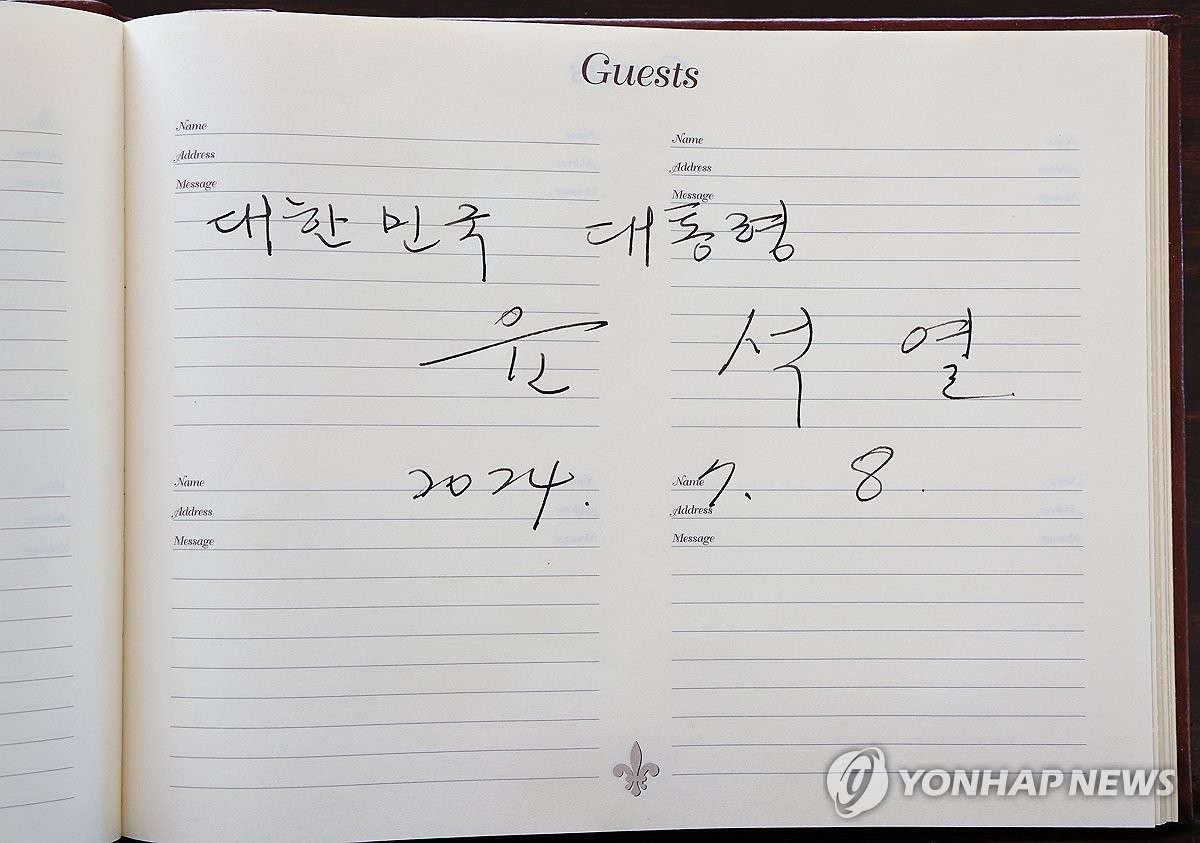 Guests
Name
Address
Message
Name
Address
Message
대한민국 대통령
윤 석 열
2024. 7. 8.
Name
Address
Message
Name
Address
Message
YONHAP NEWS